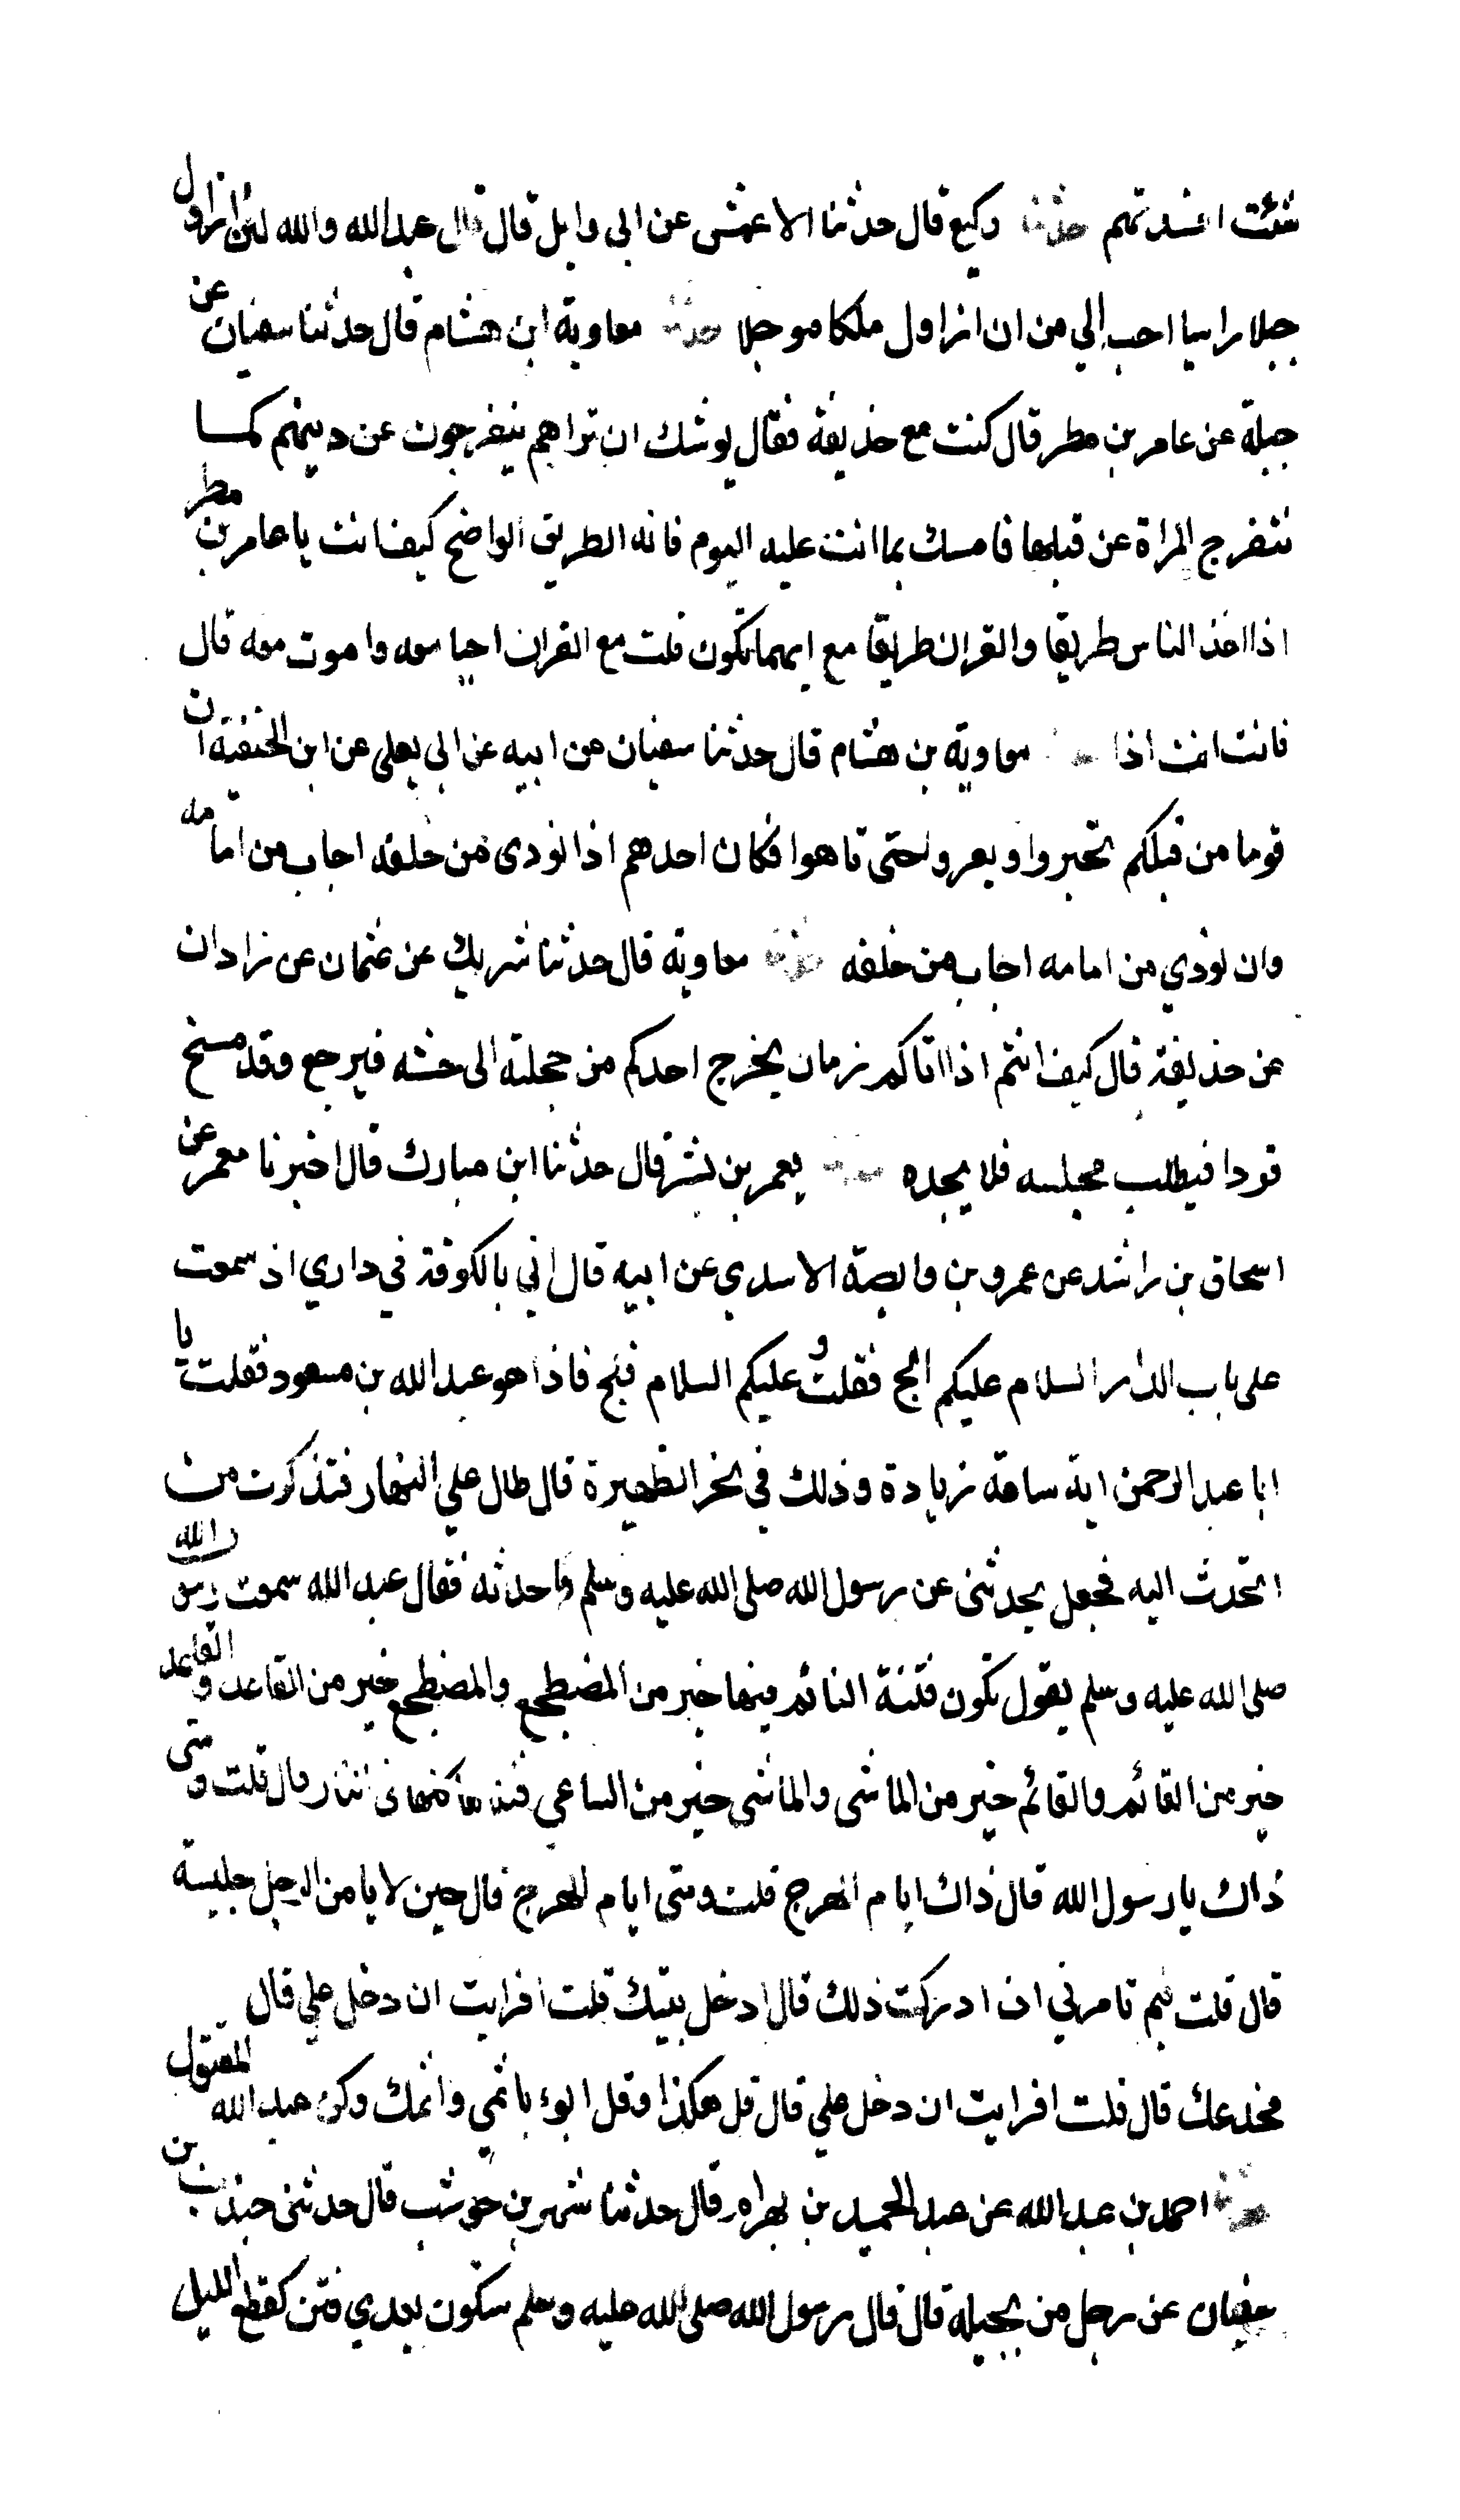 شئت انشدتهم حدثنا وكيع قال حدثنا الاعمش عن ابى وايل قال قال عبدالله والله لئن ازاول
جبلا راسيا احب الي من ان ازاول ملكا موجلا حدثنا معاوية ابن هشام قال حدثنا سفيان عن
جبلة عن عامر بن مطر قال كنت مع حذيفة فقال يوشك ان تراهم ينفرجون عن دينهم كما
تنفرج المراة عن قبلها فامسك بما انت عليه اليوم فانه الطريق الواضح كيف انت يا عامر بن مطر
اذا اخذ الناس طريقا والقران طريقا مع ايهما تكون قلت مع القران احيا معه واموت معه قال
فانت انت اذا معاوية بن هشام قال حدثنا سفيان عن ابيه عن ابى يعلى عن ابن الحنفية ان
قوما من قبلكم تحيروا و حتى تاهوا فكان احدهم اذا نودى من خلفه اجاب من امامه
وان نودي من امامه اجاب من خلفه حدثنا معاوية قال حدثنا شريك عن عثمان عن زادان
عن حذيفة قال كيف انتم اذا اتاكم زمان يخرج احدكم من حجلته الى حشه فيرجع وقد مسخ
قردا فيطلب مجلسه فلا يجده حدثنا يعمر بن بشر قال حدثنا ابن مبارك قال اخبرنا معمر عن
اسحاق بن راشد عن عمرو بن وابصة الاسدي عن ابيه قال اني بالكوفة في داري اذ سمعت
على باب الدار السلام عليكم الج فقلت وعليكم السلام فلج فاذا هو عبد الله بن مسعود فقلت يا
ابا عبد الرحمن اية ساعة زيادة وذلك في نحر الظهيرة قال طال علي النهار فتذكرت من
اتحدث اليه فجعل يحدثنى عن رسول الله صلى الله عليه وسلم واحدثه فقال عبد الله سمعت رسول الله
صلى الله عليه وسلم يقول تكون فتنة النائم فيها خير من المضطجع والمضطجع خير من القاعد والقاعد
خير من القائم والقائم خير من الماشى والماشى خير من الساعي قال قلت ومتى
ذاك يا رسول الله قال ذاك ايام الهرج قلت ومتى ايام الهرج قال حين لا يامن الرجل جليسه
قال قلت فبم تامرني ان ادركت ذلك قال ادخل بيتك قلت افرايت ان دخل علي قال
مخدعك قال قلت افرايت ان دخل علي قال قل هكذا وقل ابوء باثمي واثمك وكن عبد الله المقتول
حدثنا احمد بن عبد الله عن عبد الحميد بن بهرام قال حدثنا شهر بن حوشب قال حدثنى جندب بن
سفيان عن رجل من بجيلة قال قال رسول الله صلى الله عليه وسلم ستكون بعدي فتن كقطع الليل